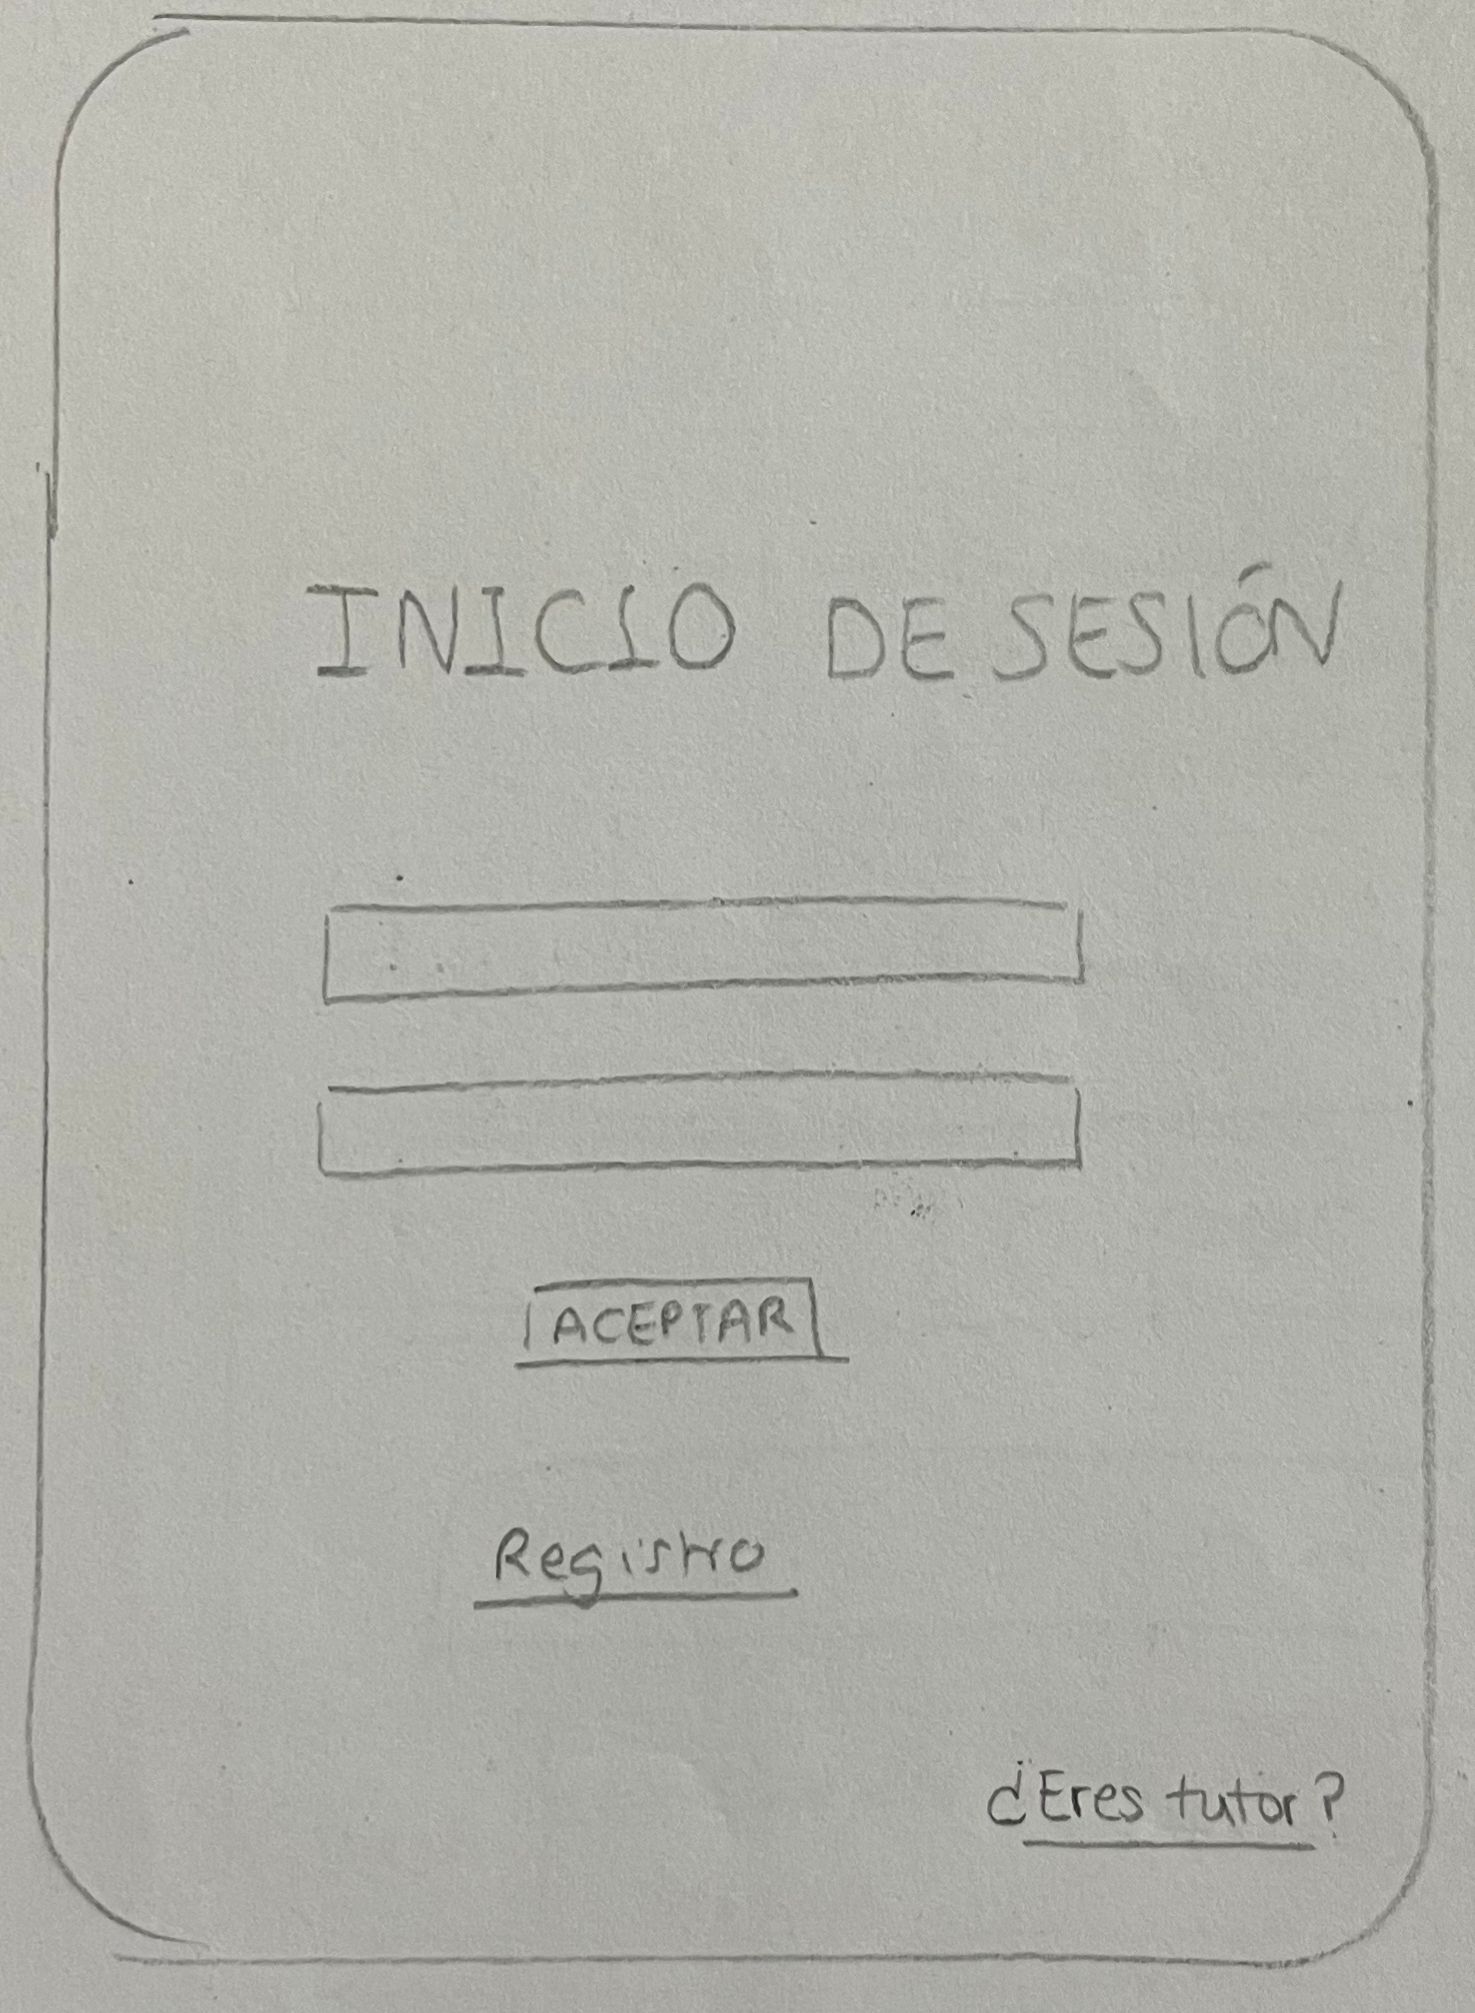 INICIO DE SESIÓN
ACEPTAR
Registro
¿Eres tutor?